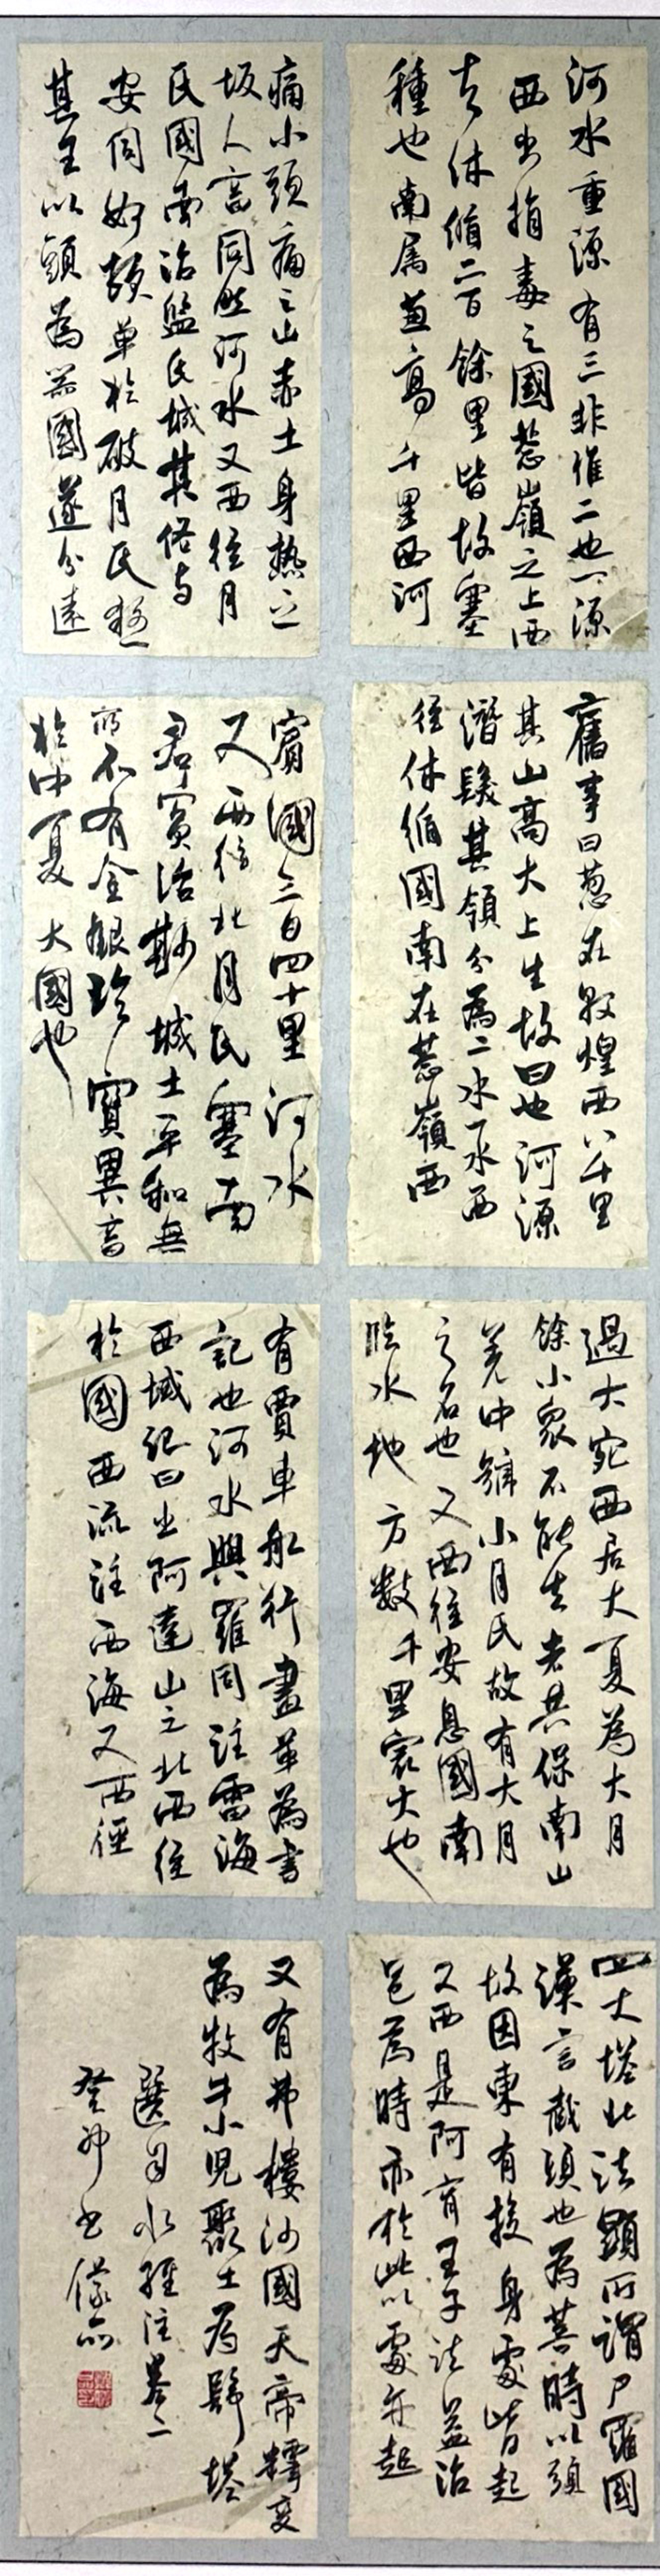 河水重源有三非惟二也一源
西出捐毒之國葱嶺之上西
去休循二百餘里皆故塞
種也南属葱高千里西河
舊事曰葱在敦煌西八千里
其山高大上生故曰也河源
潛發其領分為二水一水西
徑休循國南在葱嶺西
賓國三百四十里河水
又西徑北月氏塞南
君賓治城土平和無
所不有金銀珍寶異畜
於中夏大國也
痛小頭痛之山赤土身熱之
坂人畜同然河水又西徑月
氏國南治監氏城其俗与
安同奴頓单於破月氏殺
其王以頭為器國遂分遠
過大宛西居大夏為大月
餘小眾不能去者共保南山
羌中號小月氏故有大月
之名也又西徑安息國南
臨水地方數千里最大也
有賈車船行畫革為書
記也河水與羅同注雷海
西域記曰出阿達山之北西徑
於國西流注西海又西徑
四大塔北法顯所謂尸羅國
漢言截頭也為菩時以頭
故因東有投身處皆起
又西是阿育王子法益治
邑為時亦於此以處亦起
又有弗樓沙國天帝釋变
為牧牛小児聚土為塔
選自水經注卷二
癸卯